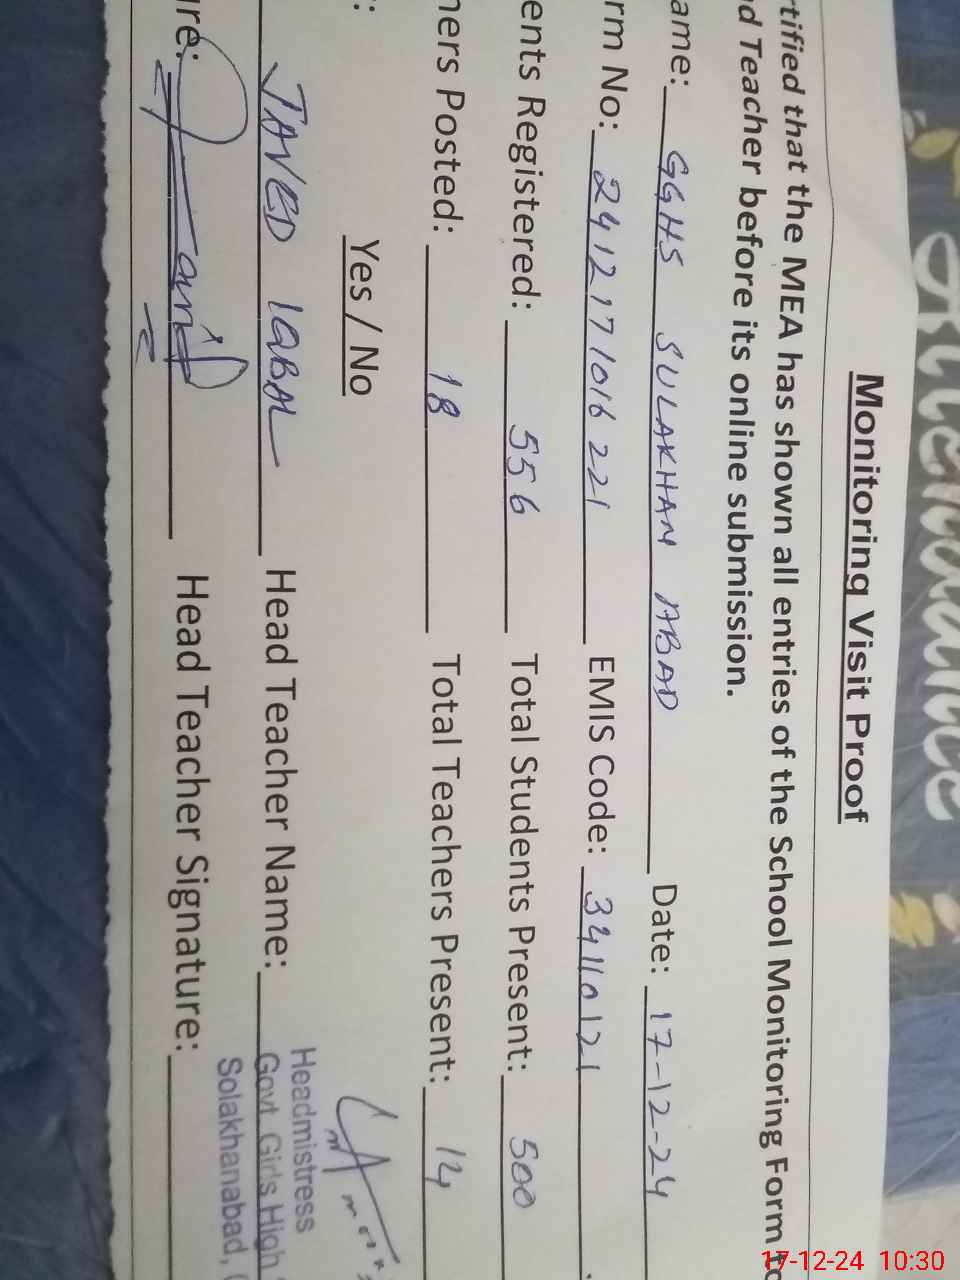 Attendance
Monitoring Visit Proof
rtified that the MEA has shown all entries of the School Monitoring Form to
nd Teacher before its online submission.
ame: GGHS SULAKHAN ABAD Date: 17-12-24
rm No: 2412171016221 EMIS Code: 34110121
ents Registered: 556 Total Students Present: 500
hers Posted: 18 Total Teachers Present: 14
: Yes / No
JAVED IQBAL Head Teacher Name:
Headmistress
Govt. Girls High
Solakhanabad, (
ure: Head Teacher Signature:
17-12-24 10:30